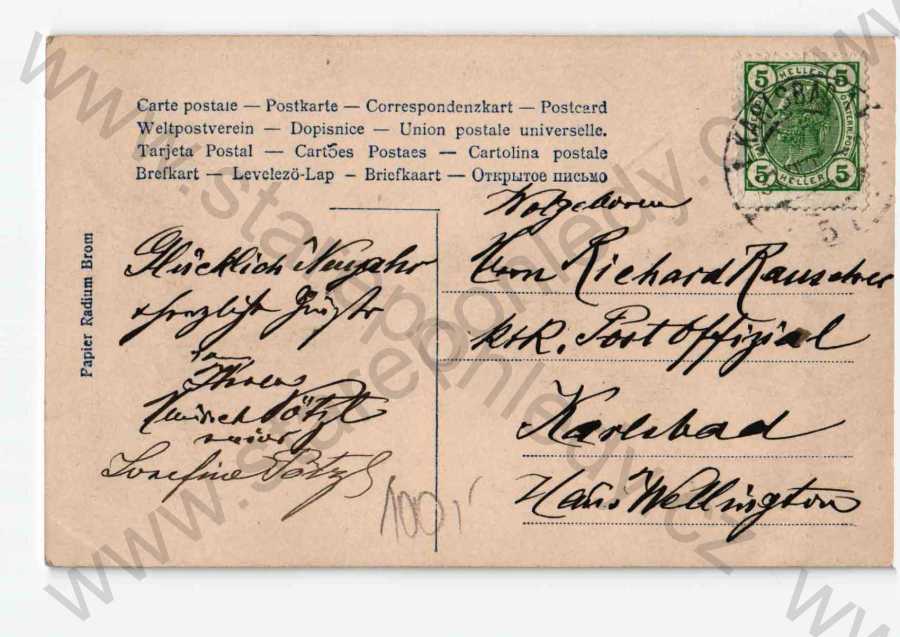 Carte postale — Postkarte — Correspondenzkart — Postcard
Weltpostverein — Dopisnice — Union postale universelle.
Tarjeta Postal — Cartões Postaes — Cartolina postale
Brefkart — Levelező-Lap — Briefkaart — Открытое письмо
5 HELLER 5
5 HELLER 5
KARLSBAD
Papier Radium Brom
Glücklich Neujahr
& herzlichst Grüße
Ihren
Pötzl
senior
Josefine Pötzl
100,-
Wolgeboren
Herrn Richard Rauscher
k&k. Post Offizial
Karlsbad
Haus Wellington
www.starepohledy.cz
www.starepohledy.cz